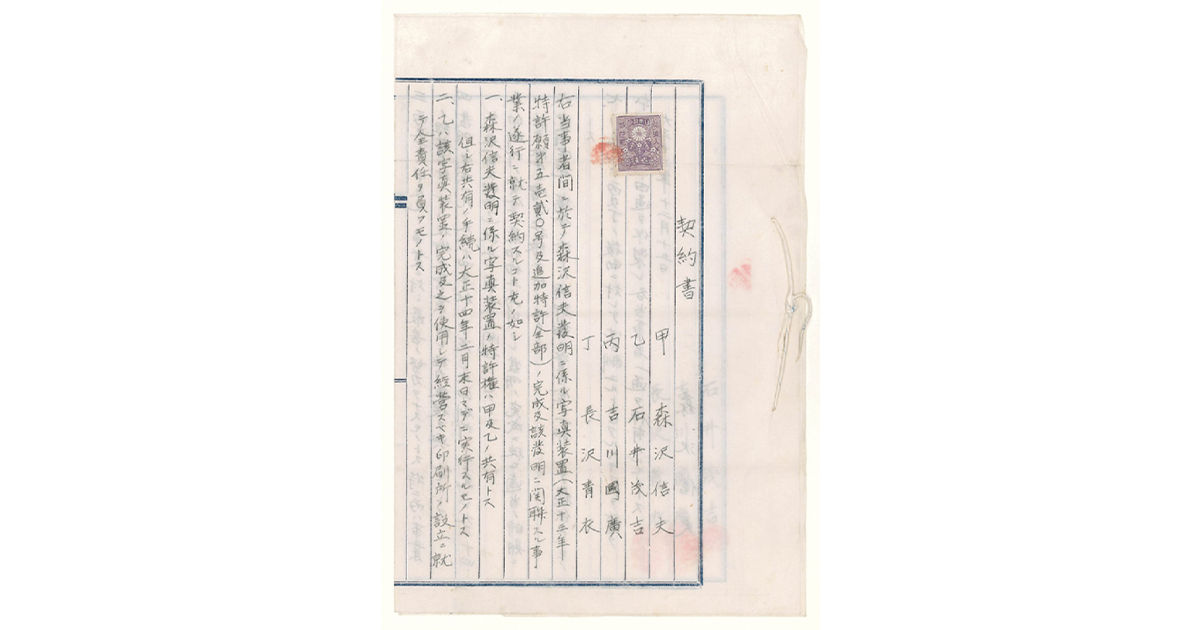 契約書
甲 森沢信夫
乙 石井茂吉
丙 吉川國廣
丁 長沢青衣
右当事者間ニ於テ森沢信夫發明ニ係ル写真装置(大正十三年
特許願第五壱貳〇号及追加特許全部)ノ完成及該發明ニ関聯スル事
業ノ遂行ニ就テ契約スルコト左ノ如シ
一、森沢信夫發明ニ係ル写真装置ノ特許権ハ甲及乙ノ共有トス
但シ右共有ノ手続ハ大正十四年二月末日マデニ実行スルモノトス
二、乙ハ該写真装置ノ完成及之ヲ使用シテ経営スベキ印刷所ノ設立ニ就
テ全責任ヲ負フモノトス